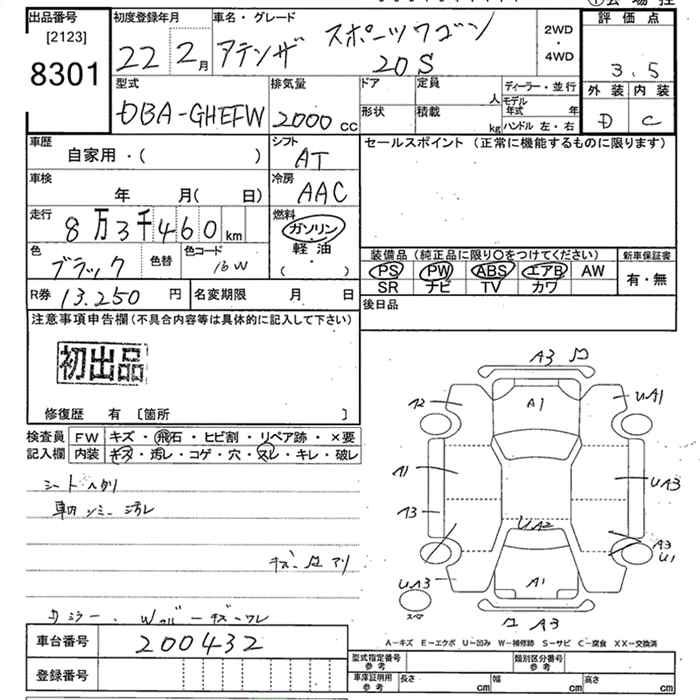 出品番号
[2123]
8301
初度登録年月
22 2月
車名・グレード
アテンザ スポーツワゴン
20S
2WD
・
4WD
評価点
3.5
外装 内装
D C
型式
DBA-GHEFW
排気量
2000 cc
ドア
形状
定員
人
積載
kg
ディーラー・並行
モデル年式 年
ハンドル 左・右
車歴
自家用・( )
シフト
AT
セールスポイント (正常に機能するものに限ります)
車検
年 月( 日)
冷房
AAC
走行
8万3千460 km
燃料
ガソリン
・
軽油
( )
色
ブラック
色替
色コード
16W
装備品 (純正品に限り○をつけてください)
PS PW ABS エアB AW
SR ナビ TV カワ
新車保証書
有・無
R券 13.250 円
名変期限 月 日
後日品
注意事項申告欄(不具合内容等は具体的に記入して下さい)
初出品
修復歴 有 [箇所 ]
検査員
記入欄
FW キズ・飛石・ヒビ割・リペア跡・×要
内装 キズ・汚レ・コゲ・穴・スレ・キレ・破レ
シートヘタリ
車内シミー汚レ
A3
A2
A1
UA1
A1
A3
UA3
UA2
A3
U1
UA3
A1
A3
スペア
車台番号 200432
登録番号
A－キズ E－エクボ U－凹み W－補修跡 S－サビ C－腐食 XX－交換済
型式指定番号
参考
類別区分番号
参考
車庫証明用
参考
長さ cm 幅 cm 高さ cm